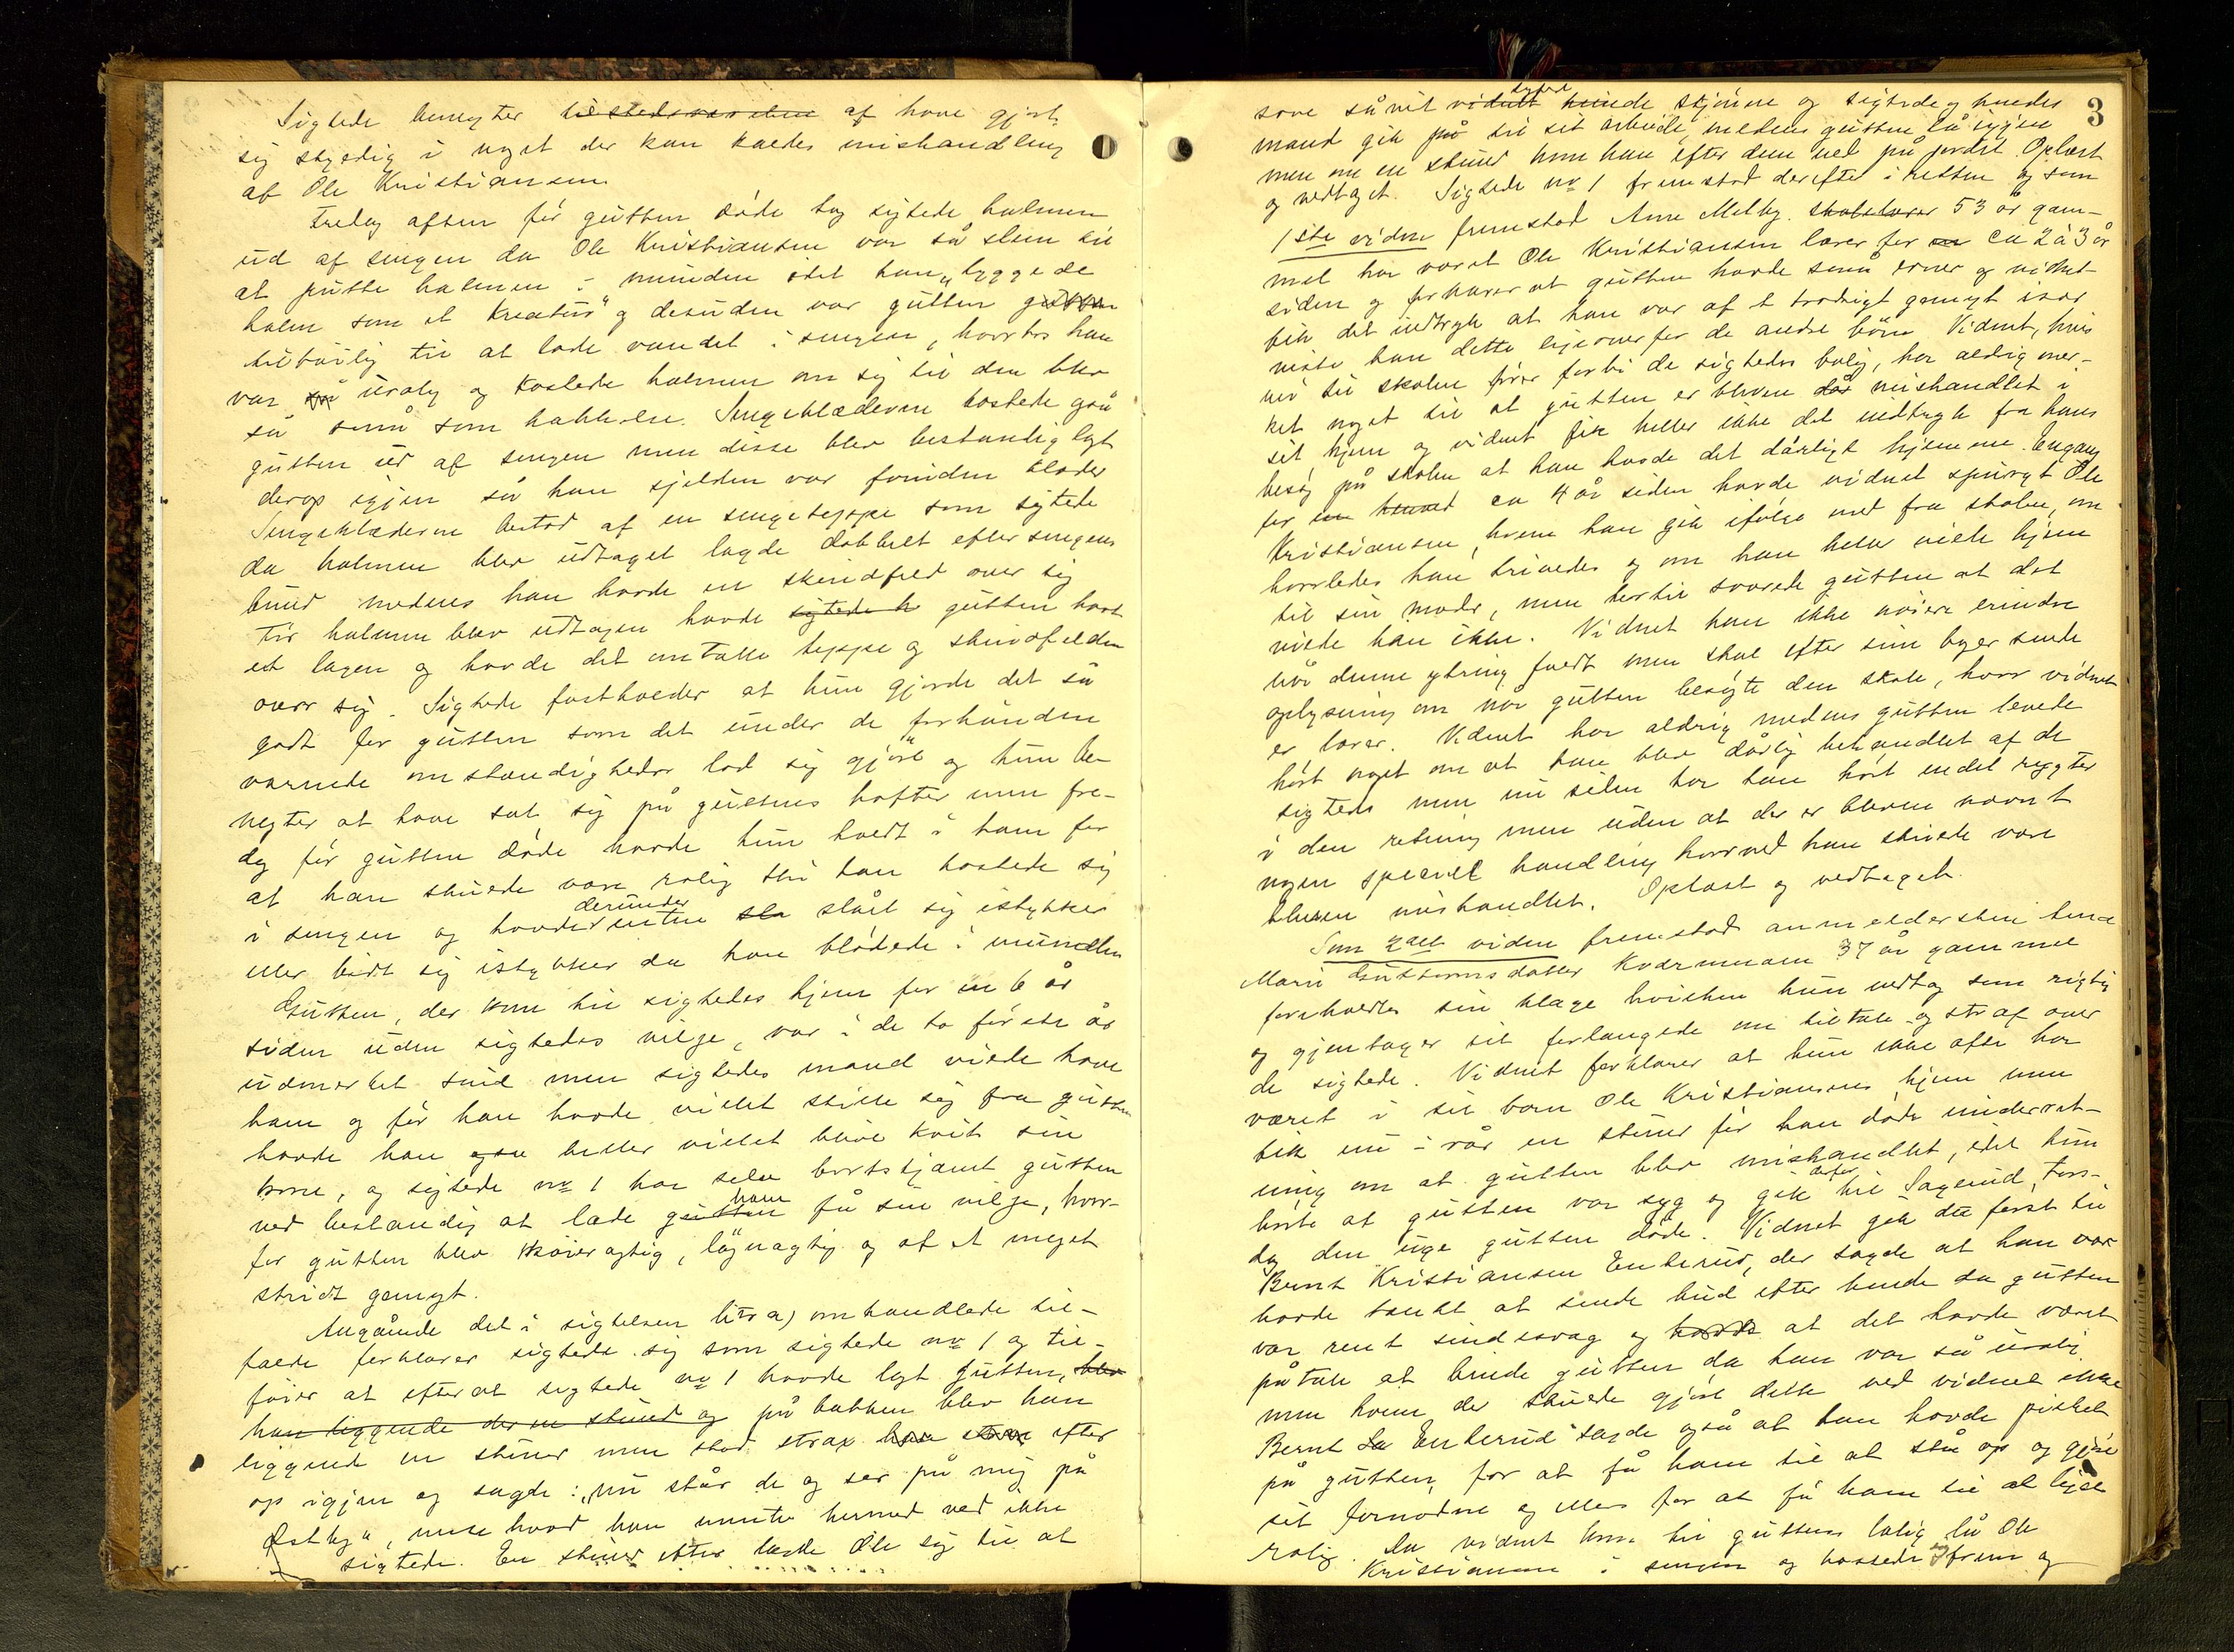 Sigtede benegter tilstedeværelsen af have gjort
sig skyldig i noget der kan kaldes mishandling
af Ole Kristiansen.
Fredag aften før gutten døde tog sigtede halmen
ud af sengen da Ole Kristiansen var så slem til
at putte halmen i munden idet han "tyggede
halm som et kreatur" og desuden var gutten gutten
tilbøilig til at lade vandet i sengen, hvorhos han
var så urolig og kastede halmen om sig til den blev
så små som hakkelse. Sengeklæderne kastede gså
gutten ud af sengen men disse blev bestandig lagt
derop igjen så han sjelden var foruden klæder
Sengeklæderne bestod af en sengeteppe som sigtede
da halmen blev udtaget lagde dobbelt efter sengens
bund medens han havde en skindfeld over sig
Før halmen blev udtagen havde sigtede h gutten havt
et lagen og havde det omtalte teppe og skindfelden
over sig. Sigtede fastholder at hun gjorde det så
godt for gutten som det under de forhånden
værende omstændigheder lod sig gjøre og hun be-
negter at have sat sig på guttens hofter men fre-
dag før gutten døde havde hun holdt i ham for
at han skulde være rolig thi han kastede sig
i sengen og havde derunder enten sla slået sig istykker
eller bidt sig istykker da han blødede i munden
Gutten, der kom til sigtedes hjem for en 6 år
siden uden sigtedes vilje, var i de to første år
udmerket snil men sigtedes mand vilde have
ham og før han havde villet skille sig fra gutten
havde han gså heller villet blive kvit sin
kone, og sigtede nr 1 har selv bortskjæmt gutten
ved bestandig at lade gutten ham få sin vilje, hvor-
for gutten blev skøieragtig, løgnagtig og af et meget
stridt gemyt.
Angående det i sigtelsen litra a) omhandlede til-
fælde forklarer sigtede sig som sigtede nr 1 og til-
føier at efterat sigtede nr 1 havde lagt gutten, blev
han liggende der en stund og på bakken blev han
liggende en stund men stod strax han stod efter
op igjen og sagde: "nu står de og ser på mig på
Østby", men hvad han mente hermed ved ikke
sigtede. En stund efter lagde Ole sig til at
3
sove såvit vidnet sigtede kunde skjønne og sigtede og hendes
mand gik på til sit arbeide, medens gutten lå igjen
men om en stund kom han efter dem ned på jordet. Oplæst
og vedtaget. Sigtede nr 1 fremstod derefter i retten og som
1ste vidne fremstod Arne Melby. skolelærer 53 år gam-
mel har været Ole Kristiansens lærer for en ca 2 à 3 år
siden og forklarer at gutten havde små evner og vidnet
fik det indtryk at han var af et trodsigt gemyt især
viste han dette ligeoverfor de andre børn. Vidnet, hvis
vei til skolen fører forbi de sigtedes bolig, har aldrig mer-
ket noget til at gutten er bleven dår mishandlet i
sit hjem og vidnet fik heller ikke det indtryk fra hans
besøg på skolen at han havde det dårligt hjemme. Engang
for en henved ca 4 år siden havde vidnet spurgt Ole
Kristiansen, hvem han gik ifølge med fra skolen, om
hvorledes han trivedes og om han heller vilde hjem
til sin moder, men hertil svarede gutten at det
vilde han ikke. Vidnet kan ikke nøiere erindre
når denne ytring faldt men skal efter sine bøger sende
oplysning om når gutten besøgte den skole, hvor vidnet
er lærer. Vidnet har aldrig medens gutten levede
hørt noget om at han blev dårlig behandlet af de
sigtede men nu siden har han hørt endel rygter
i den retning men uden at der er bleven nævnt
nogen speciel handling hvorved han skulde være
bleven mishandlet. Oplæst og vedtaget.
Som 2det vidne fremstod anmelderskens
Marie Guttormsdatter Kværnmoen 37 år gammel
foreholdtes sin klage hvilken hun vedtog som rigtig
og gjentager sit forlangende om tiltale og straf over
de sigtede. Vidnet forklarer at hun ikke ofte har
været i sit barn Ole Kristiansens hjem men
fik nu i vår en stund før han døde underret-
ning om at gutten blev mishandlet, idet hun
hørte at gutten var syg og gik derfor til Sagerud, tors-
dag den uge gutten døde. Vidnet gik da først til
Bernt Kristiansen Enkerud, der sagde at han var
havde tænkt at sende bud efter hende da gutten
var rent sindssvag og havde at det havde været
påtale at binde gutten da han var så urolig
men hvem der skulde gjøre dette ved vidnet ikke
Bernt Sa Enkerud sagde også at han havde pisket
på gutten, for at få ham til at stå op og gjøre
sit fornødne og ellers for at få ham til at ligge
rolig. Da vidnet kom til guttens bolig lå Ole
Kristiansen i sengen og kastede sig frem og